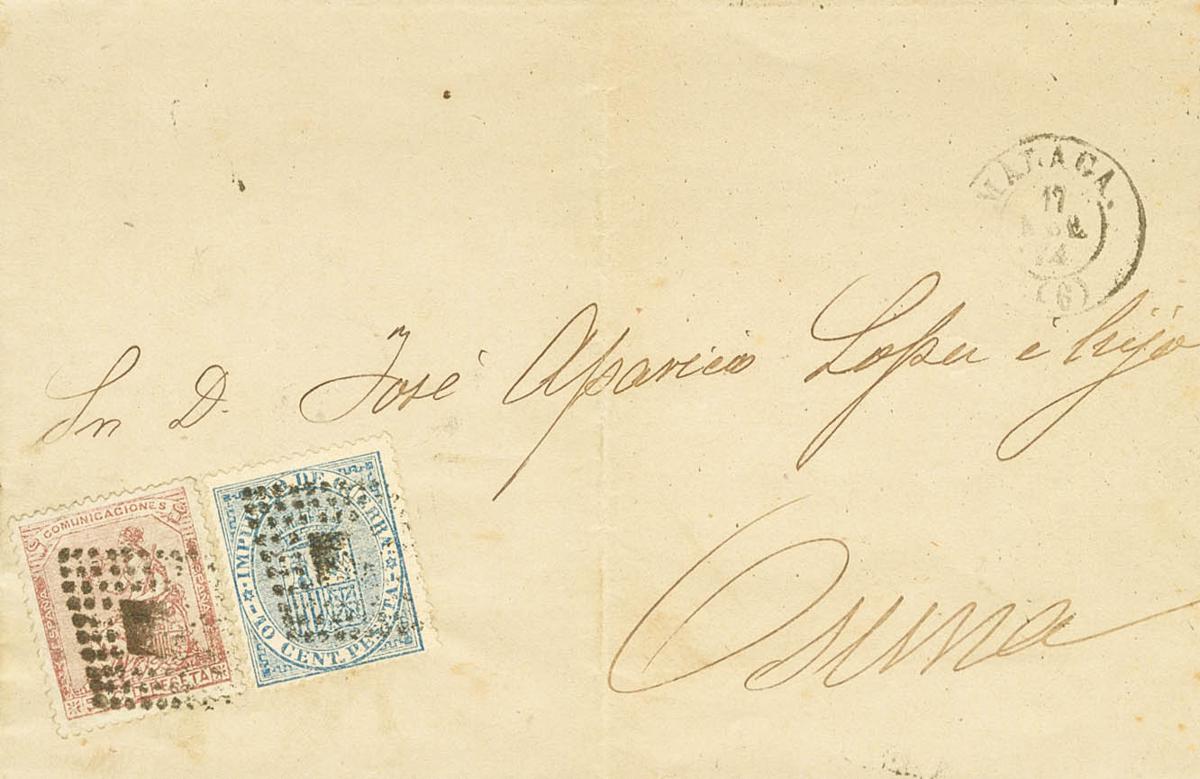 MALAGA.
17
ABR
74
(6)
Sr. D. José Aparicio Lopez é hijo
Osuna
COMUNICACIONES
ESPAÑA
PESETA
IMPUESTO DE GUERRA
10 CENT. PESETA